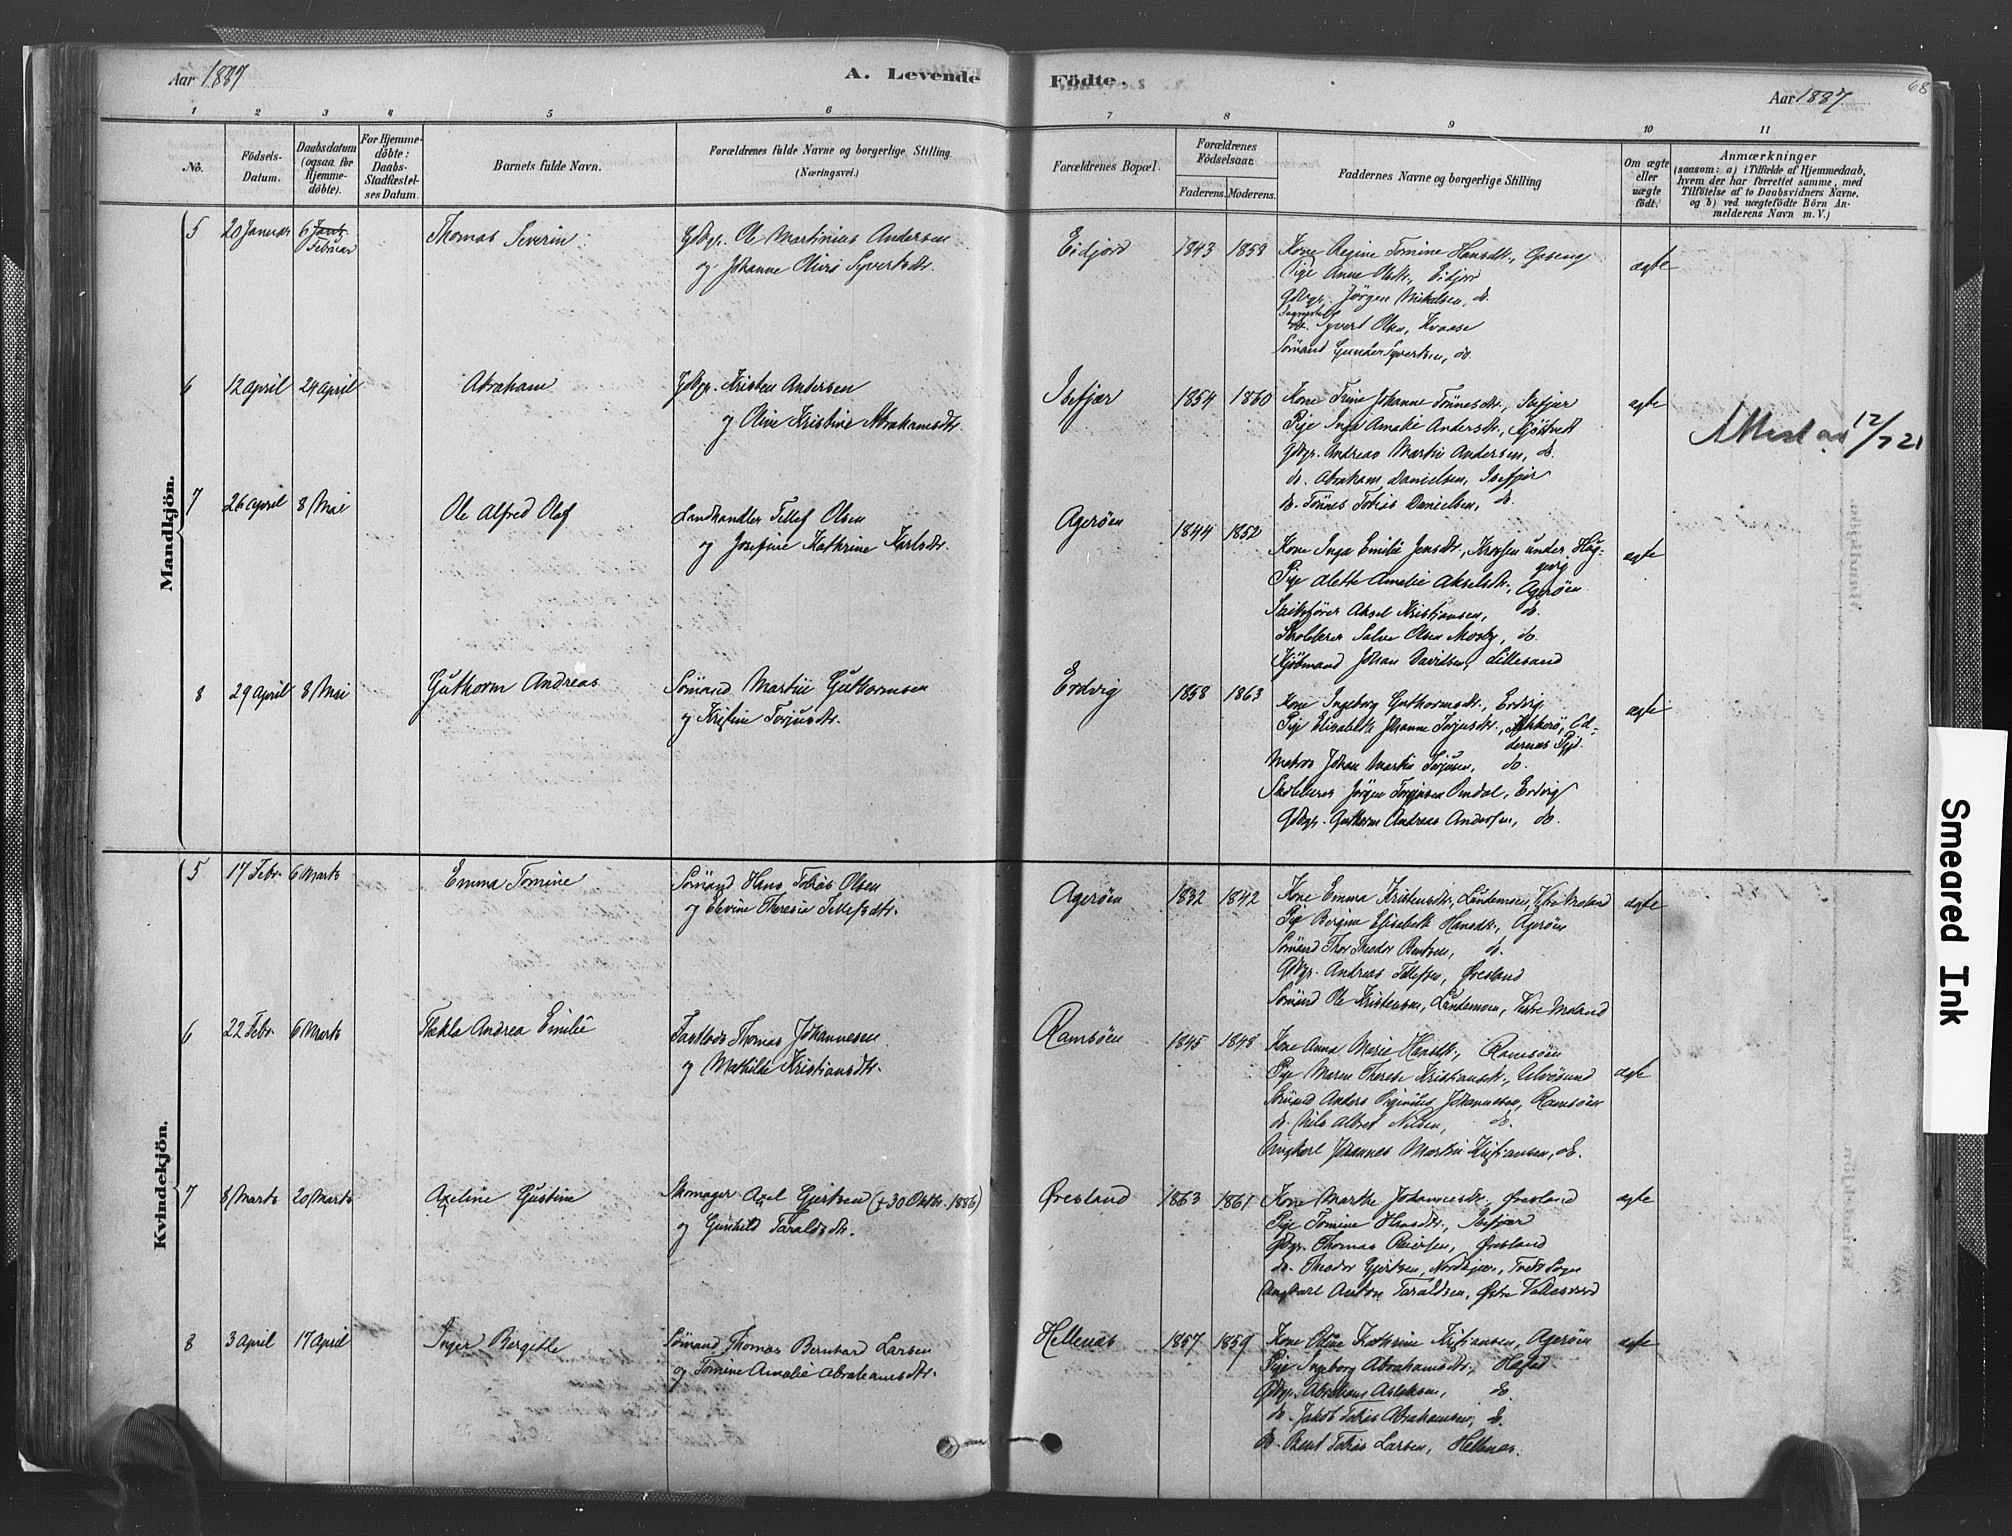 Aar 1887
A. Levende
Födte.
Aar 1887
68
1 2 3 4 5 6 7 8 9 10 11
No.
Födsels-
Datum.
Daabsdatum
(ogsaa for
Hjemme-
döbte).
For Hjemme-
döbte:
Daabs-
Stadfæstel-
ses Datum.
Barnets fulde Navn.
Forældrenes fulde Navne og borgerlige Stilling
(Næringsvei.)
Forældrenes Bopæl.
Forældrenes
Födselsaar.
Faderens. Moderens.
Faddernes Navne og borgerlige Stilling
Om ægte
eller
uægte
födt.
Anmærkninger
(saasom: a) i Tilfælde af Hjemmedaab,
hvem der har forrettet samme, med
Tilföielse af to Daabsvidners Navne.
og b) ved uægtefödte Börn An-
melderens Navn m. V.)
Mandkjön.
5 20 Januar 6 Februar Thomas Severin Gdbgr. Ole Martinius Andersen
og Johanne Oline Syvertsdtr.
Eidjord 1843 1858 Kone Regine Tomine Hansdtr., ægte
Pige Anne Olsdtr., Eidjord
Gdbgr. Jörgen Mikalsen, do.
do. Syvert Olsen, Kvaase
Sömand Gunder Syvertsen, do.
6 12 April 24 April Abraham Gdbgr. Kristen Andersen
og Olive Kristine Abrahamsdtr.
Isefjær 1854 1860 Kone Trine Johanne Tönnesdtr., Isefjær ægte
Pige Inga Amalie Andersdtr.,
Gdbgr. Andreas Martin Andersen, do.
do. Abraham Danielsen, Isefjær
do. Tönnes Tobias Danielsen, do.
12/7 21
7 26 April 8 Mai Ole Alfred Olaf Landhandler Tellef Olsen
og Josefine Kathrine Karlsdtr.
Ageröen 1844 1852 Kone Inga Emilie Jensdtr., under Høg- ægte
Pige Alette Amalie Akselsdtr., Ageröen
Aksel Kristiansen, do.
Skolelærer Salve Olsen Mosby, do.
Kjöbmand Johan Davidsen, Lillesand
8 29 April 8 Mai Guthorm Andreas Sömand Martin Guthormsen
og Kristine Torjusdtr.
Erdvig 1858 1863 Kone Ingeborg Guthormsdtr., Erdvig ægte
Pige Elisabeth Johanne Torjusdtr., Od-
dernes Pgd.
Matros Johan Martin Torjusen, do.
Skolelærer Jörgen Torjusen Omdal, Erdvig
Gdbgr. Guthorm Andreas Andersen, do.
Kvindekjön.
5 17 Febr. 6 Marts Emma Tomine Sömand Hans Tobias Olsen
og Elevine Theresia Tellefsdtr.
Ageröen 1832 1842 Kone Emma Kristensdtr., Lindemoen, Vestre Moland ægte
Pige Bergine Elisabeth Hansdtr., Ageröen
Sömand Thor Theodor Bentsen, do.
Gdbgr. Andreas Tellefsen, Øresland
Sömand Ole Kristensen, Lindemoen, Vestre Moland
6 22 Febr. 6 Marts Thekla Andrea Emilie Fastlods Thomas Johannesen
og Mathilde Kristiansdtr.
Ramsöen 1845 1848 Kone Anna Marie Hansdtr., Ramsöen
Pige Maren Therese Kristiansdtr., Ulvösund ægte
Sömand Anders Johannesen, Ramsöen
do. Nils Albret Nilsen, do.
Ungkarl Johannes Martin Kristiansen, do.
7 8 Marts 20 Marts Axeline Gustine Skomager Axel Gjertsen († 30 Oktbr. 1886)
og Gunhild Taraldsdtr.
Øresland 1863 1861 Kone Marthe Johannesdtr., Øresland ægte
Pige Tomine Hansdtr., Isefjær
Gdbgr. Thomas Reiersen, Øresland
do. Theodor Gjertsen, Tveds Sogn
Ungkarl Anton Taraldsen, Østre Vallesværd
8 3 April 17 April Inger Bergitte Sömand Thomas Bernhard Larsen
og Tomine Amalie Abrahamsdtr.
Hellenes 1857 1859 Kone Oline Kathrine Kristiansen, Ageröen ægte
Pige Ingeborg Abrahamsdtr.,
Gdbgr. Abraham Aslaksen, do.
do. Jakob Tobias Abrahamsen, do.
do. Bent Tobias Larsen, Hellenes.
Smeared Ink